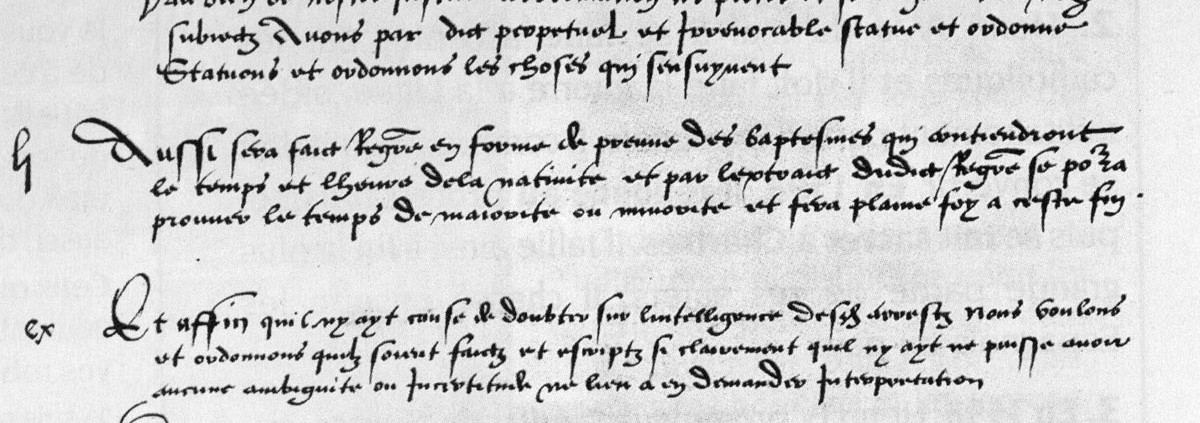 subiectz Avons par edict perpetuel et Irrevocable statue et ordonne
Statuons et ordonnons les choses qui sensuyvent
Aussi sera faict Regre en forme de preuve des baptesmes qui contiendront
le temps et lheure dela nativite et par lextraict dudict Regre se pora
prouver le temps de maiorite ou minorite et fera plaine foy a ceste fin
Et affin quil ny ayt cause de doubter sur lintelligence desd arrestz Nous voulons
et ordonnons quilz soient faictz et escriptz si clairement quil ny ayt ne puisse avoir
aucune ambiguite ou Incertitude ne lieu a en demander Interpretation